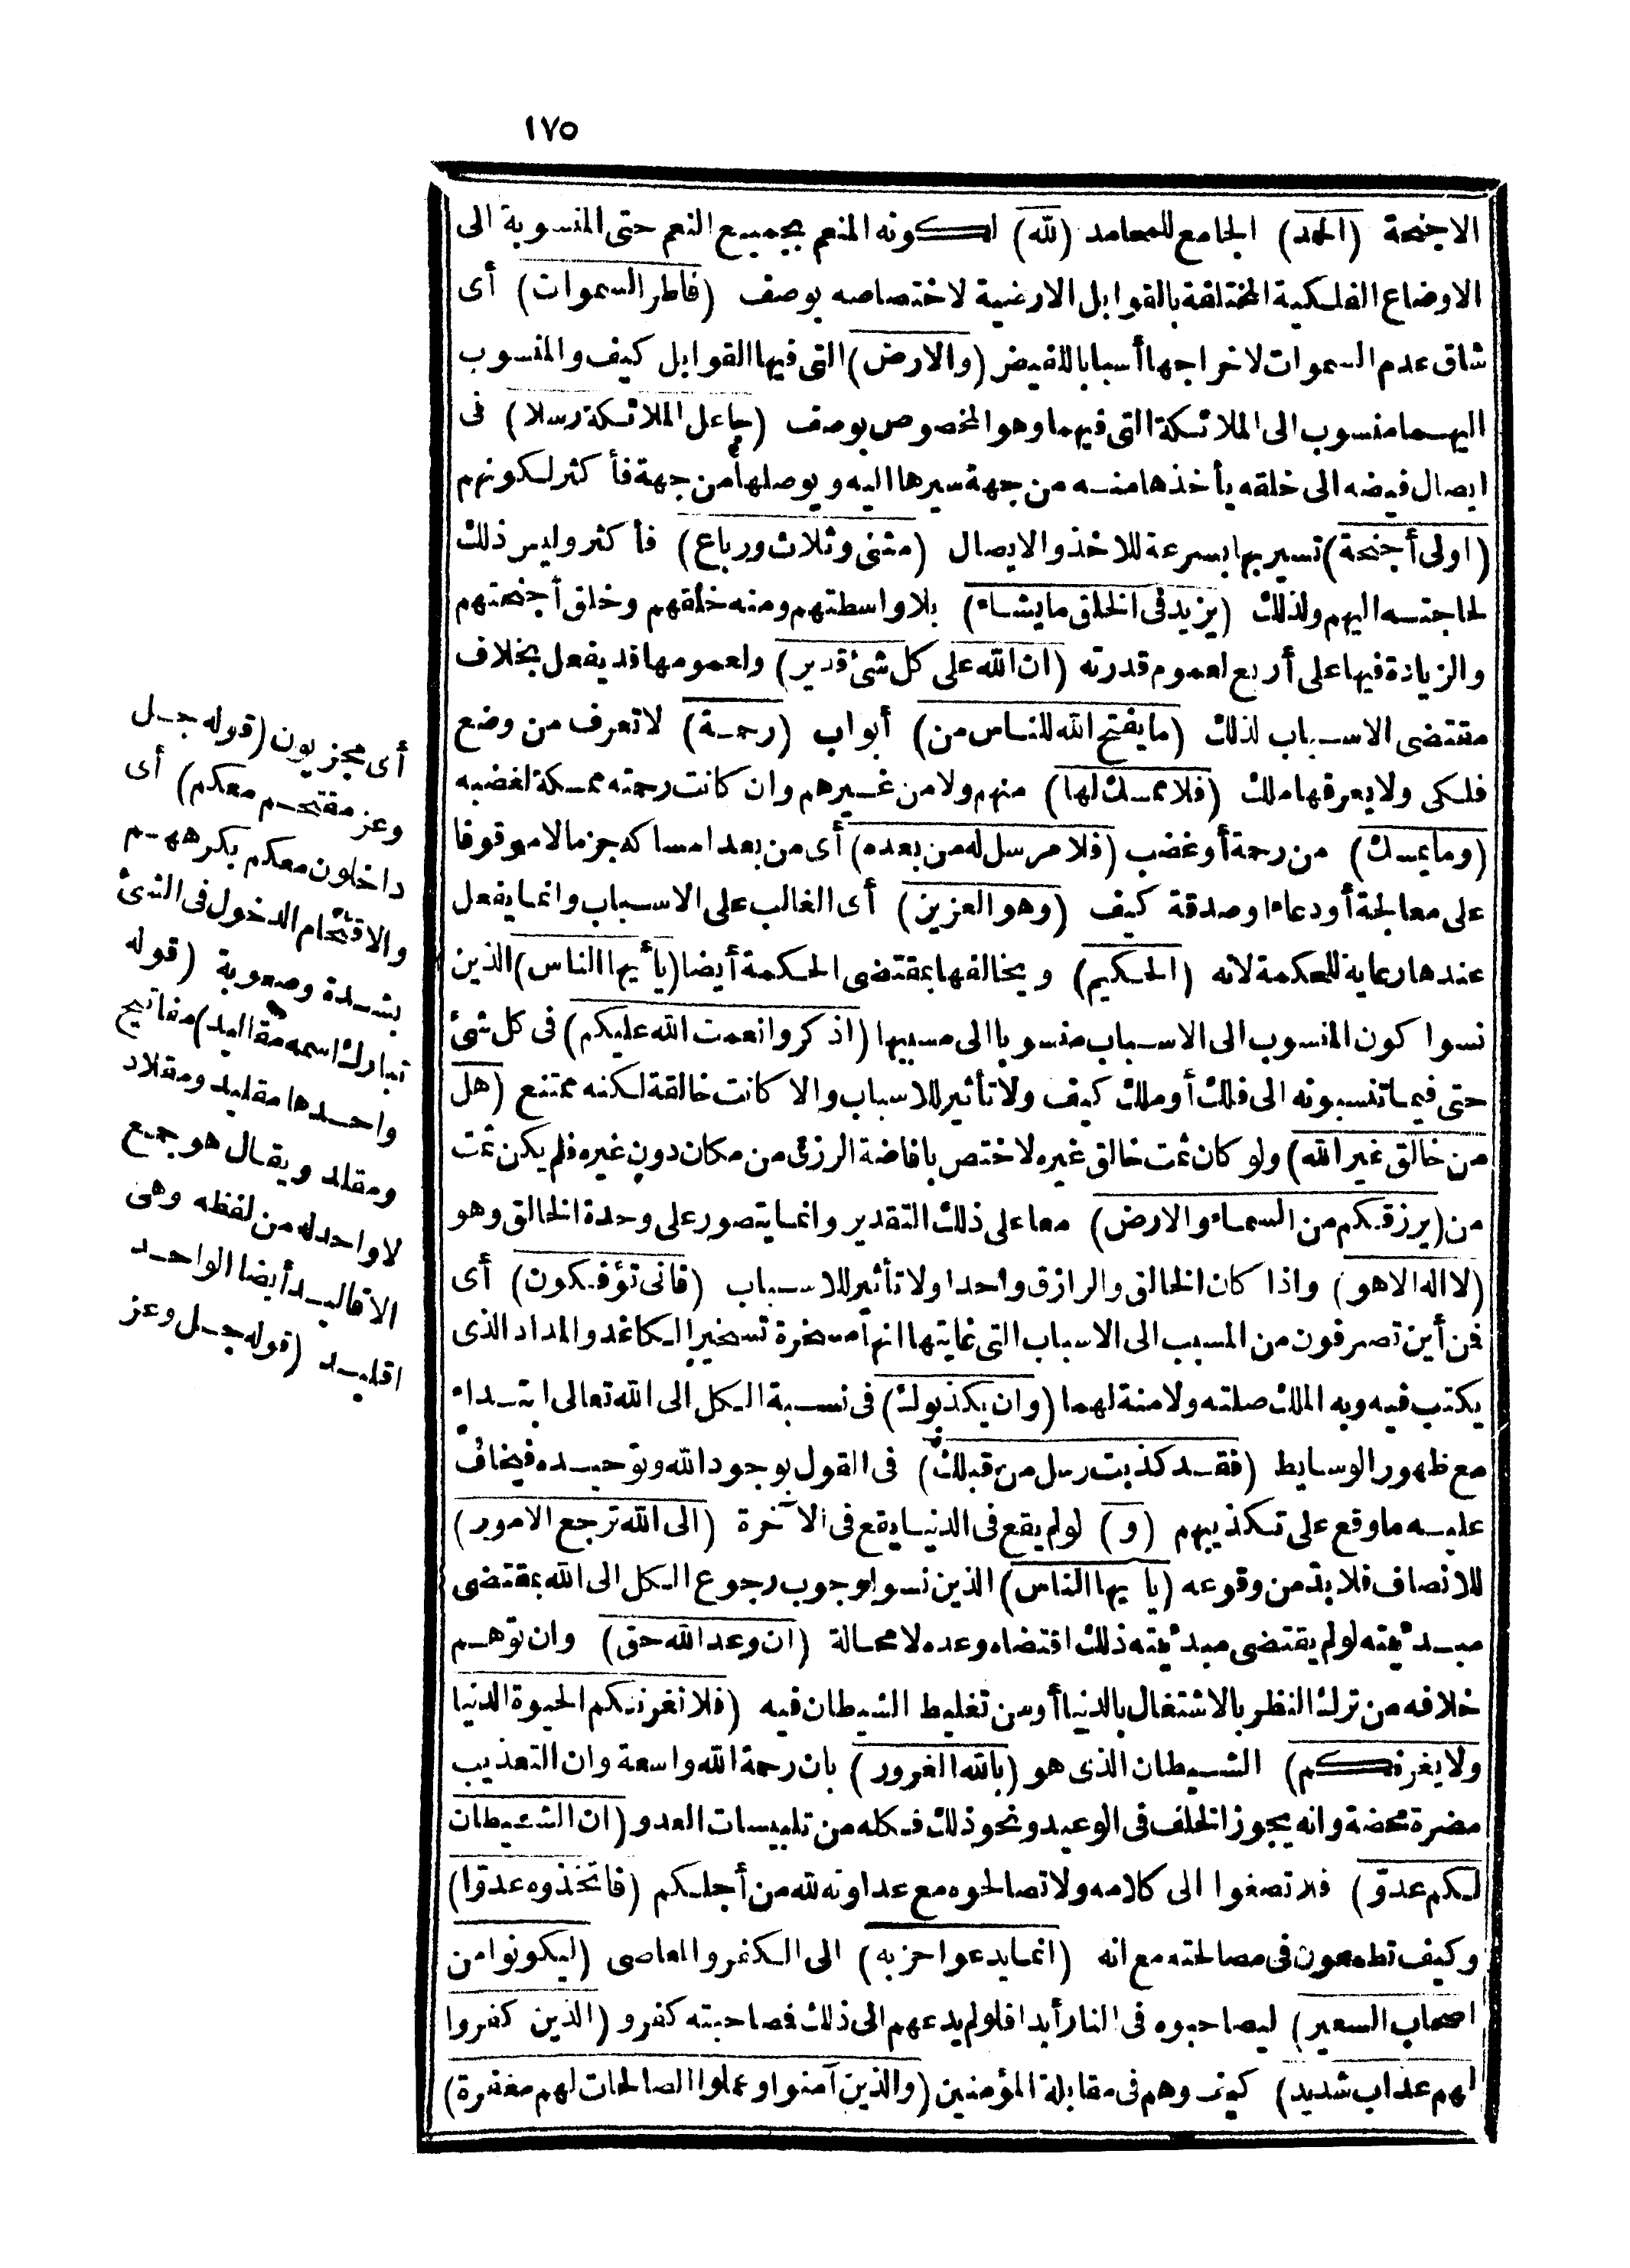 ١٧٥
الاجنحة (الحمد) الجامع للمحامد (لله) لكونه المنعم بجميع النعم حتى المنسوبة الى
الاوضاع الفلكية المختلفة بالقوابل الارضية لاختصاصه بوصف (فاطر السموات) أى
شاق عدم السموات لاخراجها أسبابا للفيض (والارض) التى فيها القوابل كيف والمنسوب
اليهما منسوب الى الملائكة التى فيهما وهو المخصوص بوصف (جاعل الملائكة رسلا) فى
ايصال فيضه الى خلقه يأخذها منه من جهة سيرها اليه ويوصلها من جهة فأكثر لكونهم
(اولى أجنحة) تسير بها بسرعة للاخذ والايصال (مثنى وثلاث ورباع) فأكثر وليس ذلك
لحاجته اليهم ولذلك (يزيد فى الخلق ما يشاء) بلا واسطتهم ومنه خلقهم وخلق أجنحتهم
والزيادة فيها على أربع لعموم قدرته (ان الله على كل شئ قدير) ولعمومها قد يفعل بخلاف
مقتضى الاسباب لذلك (ما يفتح الله للناس من) أبواب (رحمة) لا تعرف من وضع
فلكى ولا يعرفها ملك (فلا ممسك لها) منهم ولا من غيرهم وان كانت رحمته ممسكة لغضبه
(وما يمسك) من رحمة أو غضب (فلا مرسل له من بعده) أى من بعد امساكه جزما لا موقوفا
على معالجة أو دعاء او صدقة كيف (وهو العزيز) أى الغالب على الاسباب وانما يفعل
عندها رعاية للحكمة لانه (الحكيم) ويخالفها بمقتضى الحكمة أيضا (يا أيها الناس) الذين
نسوا كون المنسوب الى الاسباب منسوبا الى مسببها (اذكروا نعمت الله عليكم) فى كل شئ
حتى فيما تنسبونه الى فلك أو ملك كيف ولا تأثير للاسباب والا كانت خالقة لكنه ممتنع (هل
من خالق غير الله) ولو كان ثمت خالق غيره لاختص بافاضة الرزق من مكان دون غيره فلم يكن ثمت
من (يرزقكم من السماء والارض) معا على ذلك التقدير وانما يتصور على وحدة الخالق وهو
(لا اله الا هو) واذا كان الخالق والرازق واحدا ولا تأثير للاسباب (فانى تؤفكون) أى
فمن أين تصرفون من المسبب الى الاسباب التى غايتها انها مسخرة تسخير الكاغد والمداد الذى
يكتب فيه وبه الملك صلته ولا منة لهما (وان يكذبوك) فى نسبة الكل الى الله تعالى ابتداء
مع ظهور الوسايط (فقد كذبت رسل من قبلك) فى القول بوجود الله وتوحيده فيخاف
عليه ما وقع على تكذيبهم (و) لو لم يقع فى الدنيا يقع فى الآخرة (الى الله ترجع الامور)
للانصاف فلا بدّ من وقوعه (يا يها الناس) الذين نسوا وجوب رجوع الكل الى الله بمقتضى
مبدئيته لو لم يقتضى مبدئيته ذلك اقتضاه وعده لا محالة (ان وعد الله حق) وان توهم
خلافه من ترك النظر بالاشتغال بالدنيا أو من تغليط الشيطان فيه (فلا تغرنكم الحيوة الدنيا
ولا يغرنكم) الشيطان الذى هو (بالله الغرور) بان رحمة الله واسعة وان التعذيب
مضرة محضة وانه يجوز الخلف فى الوعيد ونحو ذلك فكله من تلبيسات العدو (ان الشيطان
لكم عدوّ) فلا تصغوا الى كلامه ولا تصالحوه مع عداوته لله من أجلكم (فاتخذوه عدوّا)
وكيف تطمعون فى مصالحته مع انه (انما يدعوا حزبه) الى الكفر والمعاصى (ليكونوا من
اصحاب السعير) ليصاحبوه فى النار أبدا فلو لم يدعهم الى ذلك فصاحبته كفر و (الذين كفروا
لهم عذاب شديد) كيف وهم فى مقابلة المؤمنين (والذين آمنوا وعملوا الصالحات لهم مغفرة)
أى مجزيون (قوله جل
وعز مقتحم معكم) أى
داخلون معكم بكرههم
والاقتحام الدخول فى الشئ
بشدة وصعوبة (قوله
تبارك اسمه مقاليد) مفاتيح
واحدها مقليد ومقلاد
ومقلد ويقال هو جمع
لا واحد له من لفظه وهى
الاقاليد أيضا الواحد
اقليد (قوله جل وعز